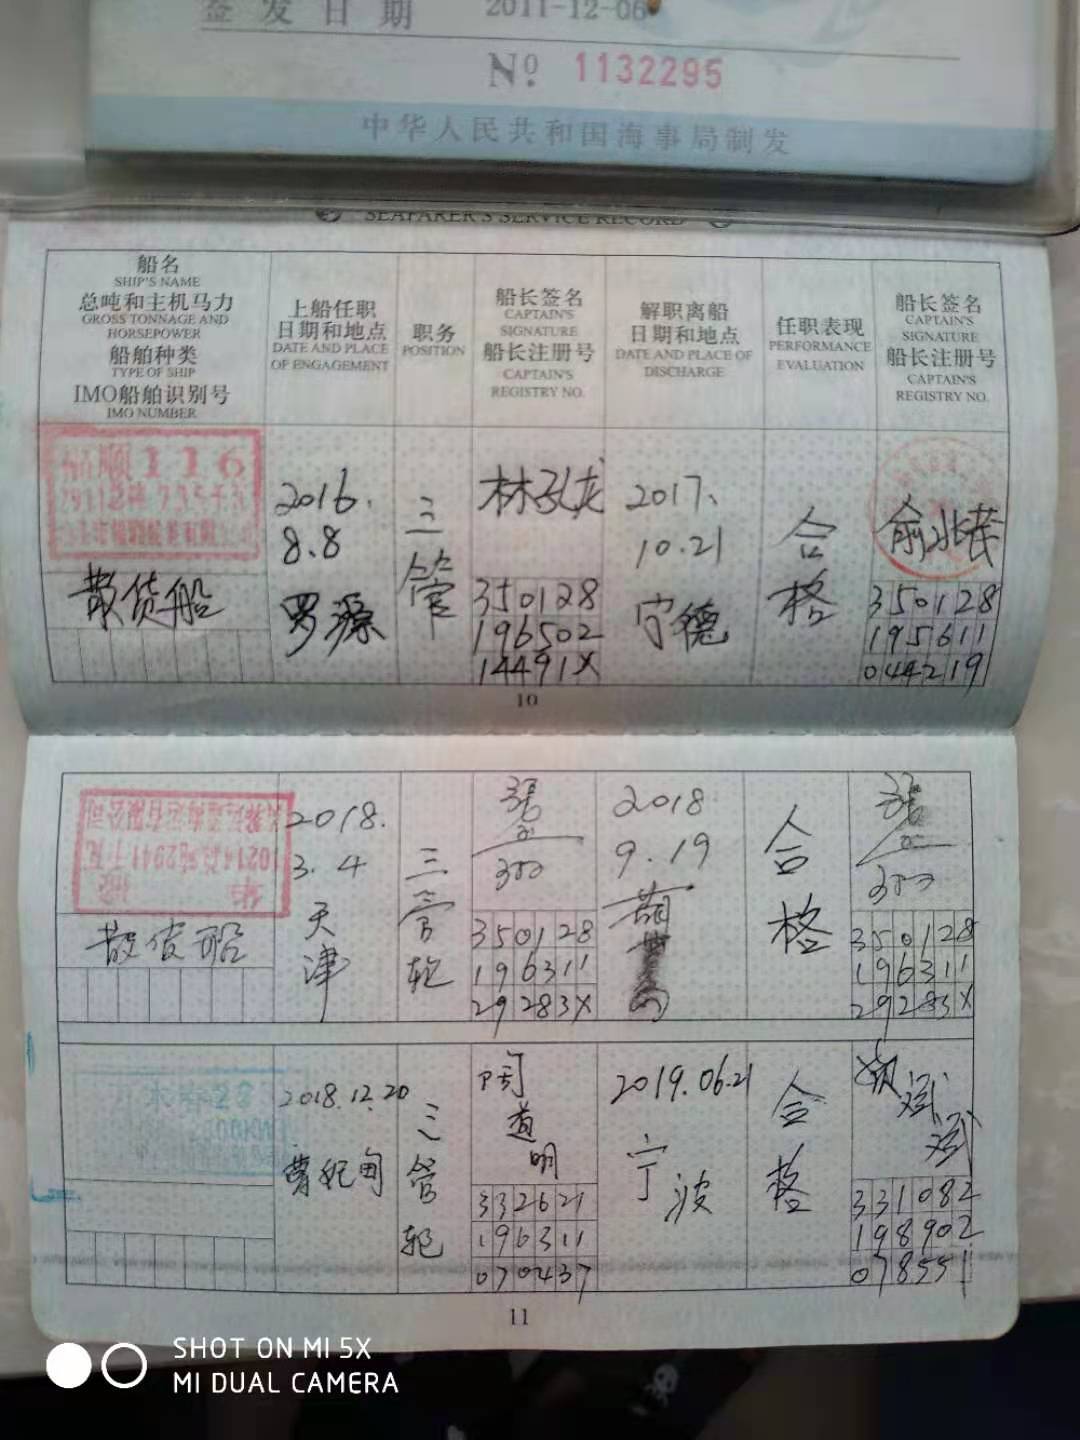 签发日期 2011-12-06
Nº 1132295
中华人民共和国海事局制发
SEAFARER'S SERVICE RECORD
船名
SHIP'S NAME
总吨和主机马力
GROSS TONNAGE AND
HORSEPOWER
船舶种类
TYPE OF SHIP
IMO船舶识别号
IMO NUMBER
上船任职
日期和地点
DATE AND PLACE
OF ENGAGEMENT
职务
POSITION
船长签名
CAPTAIN'S
SIGNATURE
船长注册号
CAPTAIN'S
REGISTRY NO.
解职离船
日期和地点
DATE AND PLACE OF
DISCHARGE
任职表现
PERFORMANCE
EVALUATION
船长签名
CAPTAIN'S
SIGNATURE
船长注册号
CAPTAIN'S
REGISTRY NO.
顺116
散货船
2016.
8.8
罗源
三管
林孔龙
350128
196502
14491X
2017.
10.21
宁德
合格
350128
195611
044219
10
散货船
2018.
3.4
天津
三管轮
350128
196311
29283X
2018
9.19
合格
350128
196311
29283X
2018.12.20
曹妃甸
三管轮
陶道明
332621
196311
070437
2019.06.21
宁波
合格
斌斌
331082
198902
078551
11
SHOT ON MI 5X
MI DUAL CAMERA